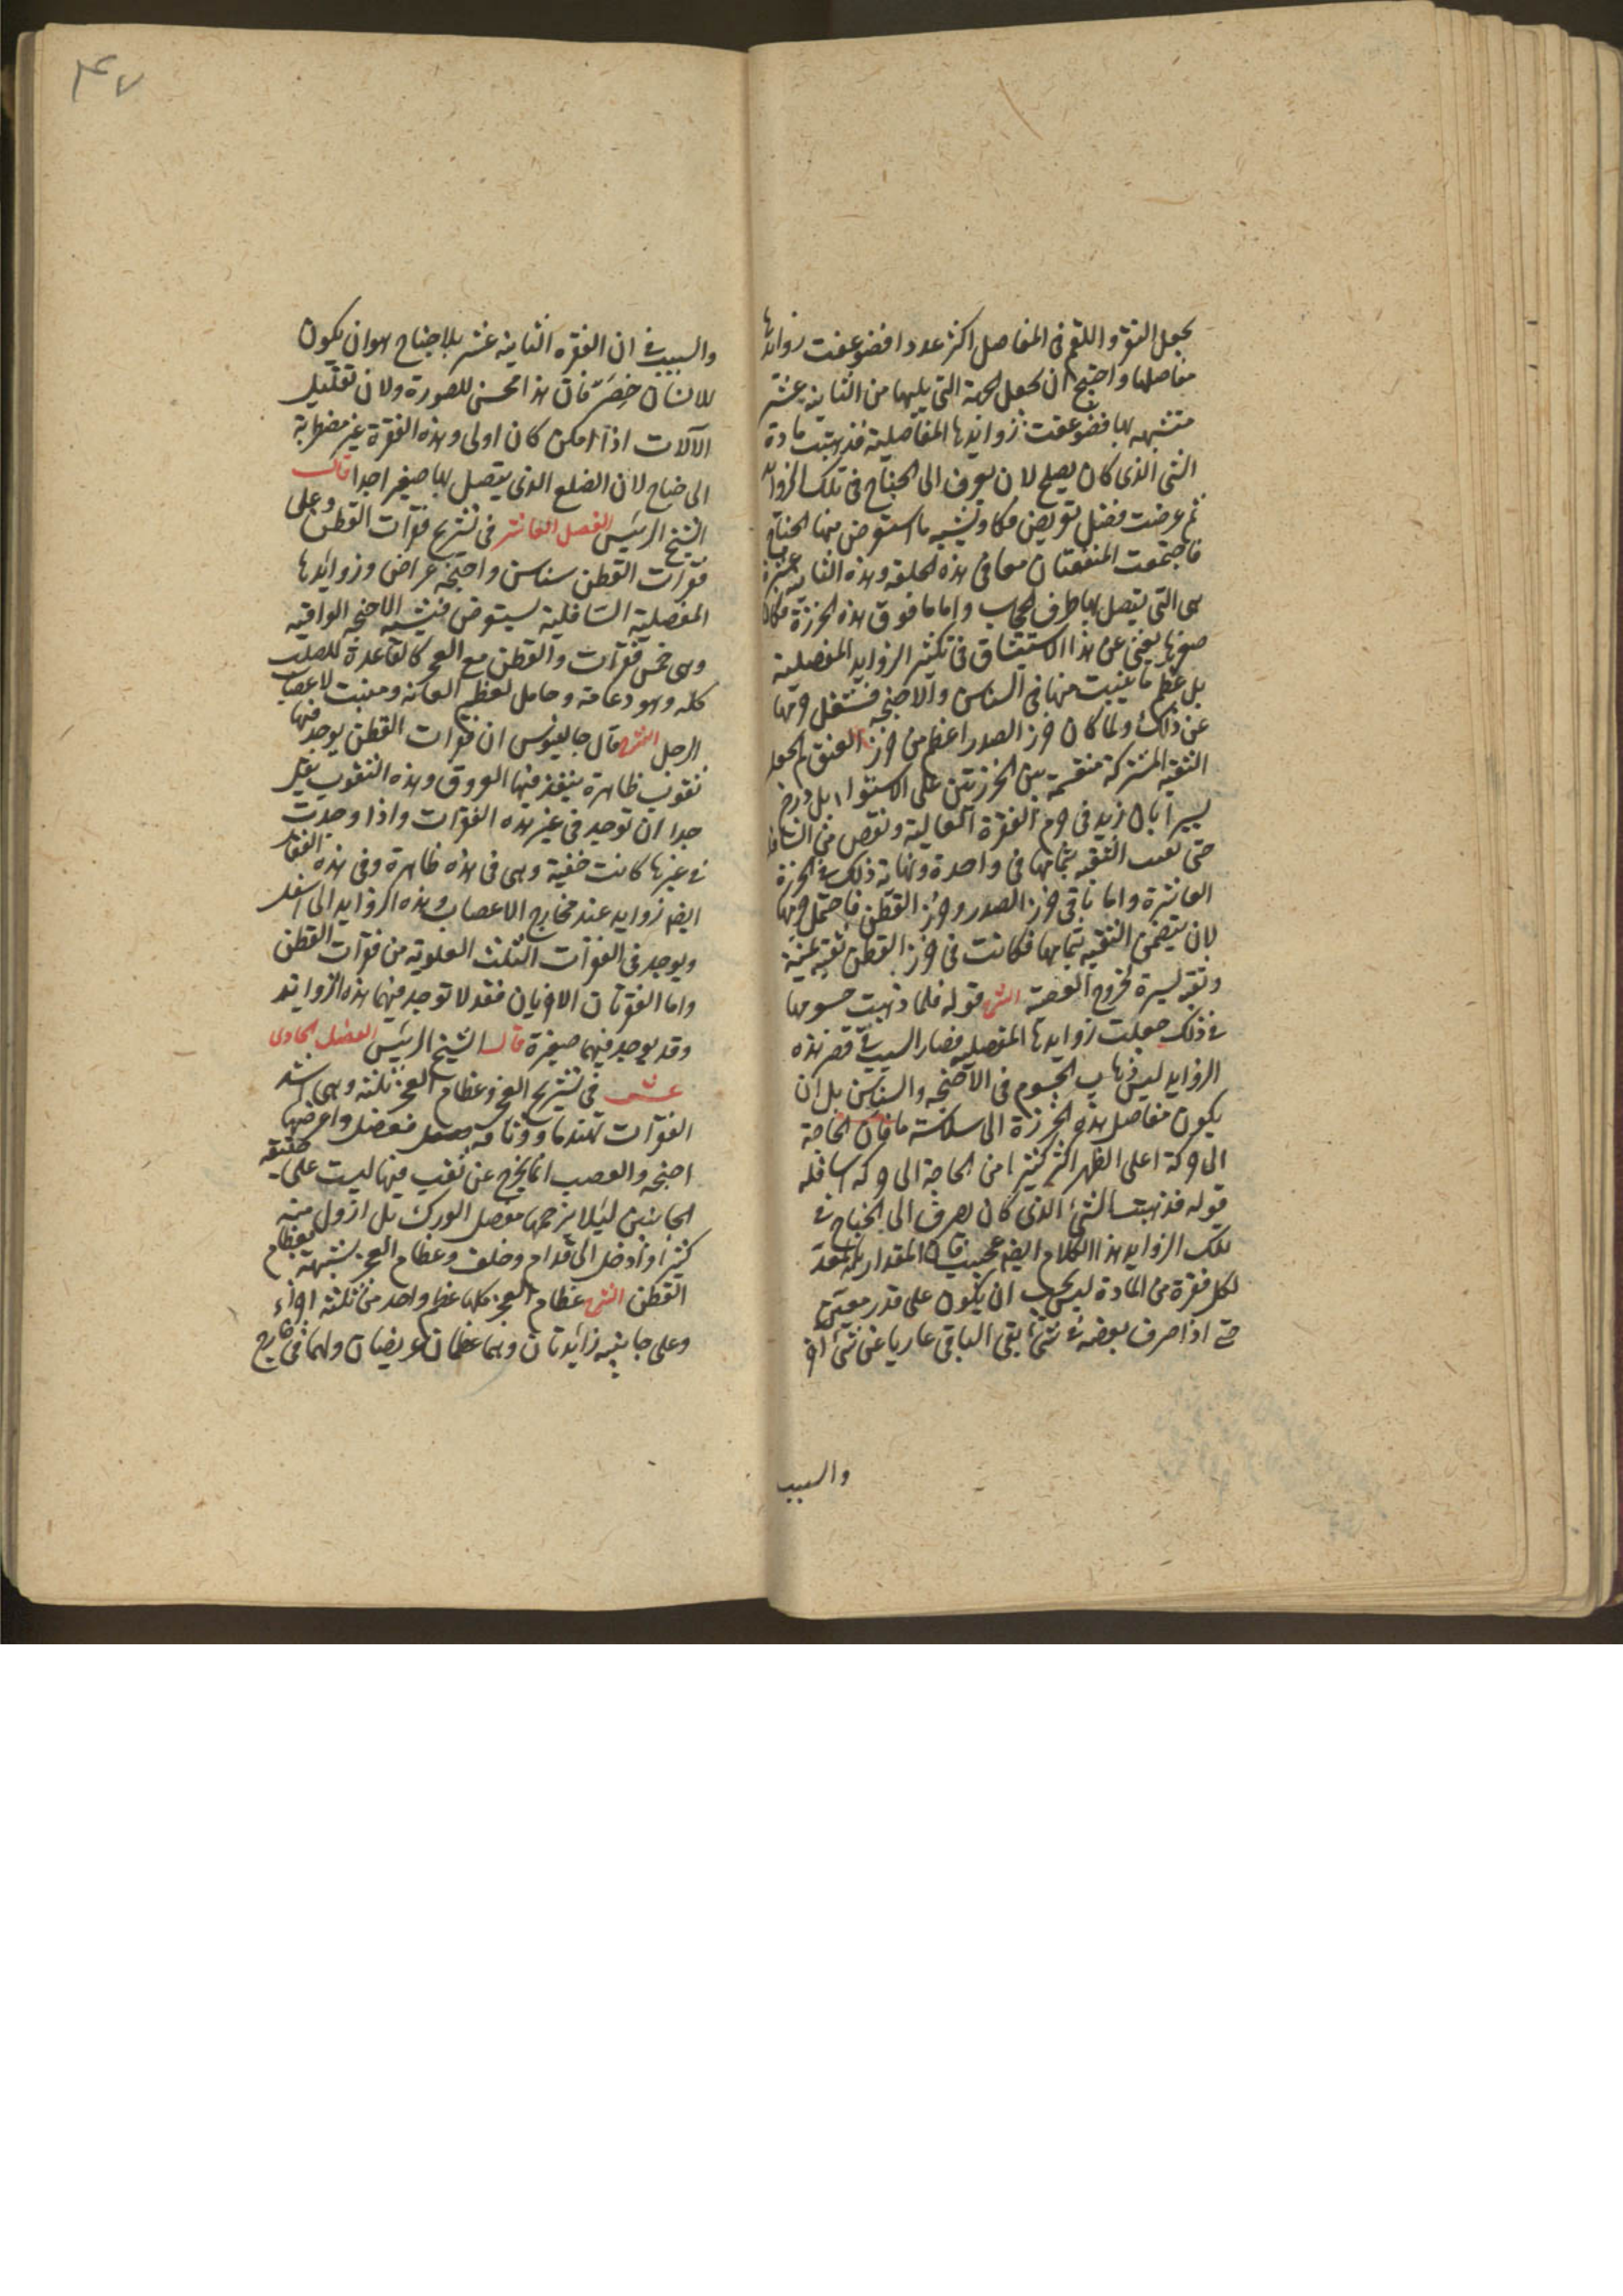 يجعل النقر و اللقم فى المفاصل اكثر عددا فضوعفت زوايد
مفاصلها واحتيج ان يجعل الجهة التى يليها من الثانية عشر
متشبهه بها فضوعفت زوايدها المفاصلية فذهبت مادة
الشى الذى كان يصلح لان يصرف الى الجناح فى تلك الزوايد
ثم عرضت فضل تعريض فكاد يشبه ما استعرض منها الجناح
فاجتمعت المنفعتان معا فى هذه الحلقه وهذه الثانية عشرة
هى التى يتصل بها طرف الحجاب واما ما فوق هذه الخرزة فكان
صغرها يغنى عن هذا الاستيثاق فى تكثير الزوايد المفصلية
بل عظم ما ينبت منها فى السناسن والاجنحه فشغل جرمها
عن ذلك ولما كان خرز الصدر اعظم من خرز العنق لم يجعل
الثقبه المشتركة منقسمة بين الخرزتين على الاستواء بل درج
يسيرا بان زيد فى جرم الفقرة العالية ونقص من السافلة
حتى تقب الثقبه بتمامها فى واحدة ونهاية ذلك فى الخرزة
العاشرة واما باقى خرز الصدر وخرز القطن فاحتمل جرمها
لان يتضمن الثقبه بتمامها فكانت فى خرز القطن ثقبة يمنة
وثقبة يسرة لخروج العصبة الش قوله فلما ذهبت جسومها
فى ذلك جعلت زوايدها المفصليه فصار السبب فى قصر هذه
الزوايد ليس ذهاب الجسوم فى الاجنحه والسناسن بل ان
يكون مفاصل هذه الخرزة الى سلاسة ما فان الحاجة
الى حركة اعلى الظهر اكثر كثيرا من الحاجة الى حركة اسافله
قوله فذهبت الشئ الذى كان يصرف الى الجناح فى
تلك الزوايد هذا الكلام ايضا عجيب فان المقدار المعد
لكل فقرة من المادة ليس يجب ان يكون على قدر معين
حتى اذا صرف بعضه فى شئ بقى الباقى عاريا عن شئ اخر
والسبب
٤٧
والسبب فى ان الفقره الثانية عشر بلا جناح هو ان يكون
للانسان خصر فان هذا محسن للصورة ولان تقليل
الآلات اذا امكن كان اولى وهذه الفقرة غير مضطرة
الى جناح لان الضلع الذى يتصل بها صغير جدا قال
الشيخ الرئيس الفصل العاشر فى تشريح فقرات القطن وعلى
فقرات القطن سناسن واجنحه عراض وزوائدها
المفصلية السافلية يستعرض فيشبه الاجنحه الواقيه
وهى خمس فقرات والقطن مع العجز كالقاعدة للصلب
كله وهو دعامة وحامل لعظم العانه ومنبت لاعصاب
الرجل الش قال جالينوس ان فقرات القطن يوجد فيها
ثقوب ظاهرة ينفذ فيها العروق وهذه الثقوب يقل
جدا ان توجد فى غير هذه الفقرات واذا وجدت
فى غيرها كانت خفية وهى فى هذه ظاهرة وفى هذه الفقار
ايضا زوايد عند مخارج الاعصاب وهذه الزوايد الى اسفل
ويوجد فى الفقرات الثلث العلوية من فقرات القطن
واما الفقرتان الاخريان فقد لا توجد فيهما هذه الزوايد
وقد يوجد فيهما صغيرة قال الشيخ الرئيس الفصل الحادى
عشر فى تشريح العجز وعظام العجز ثلثة وهى اشد
الفقرات تهندما ووثاقة مفصل واعرضها
اجنحه والعصب انما يخرج عن ثقب فيها ليست على حقيقة
الجانبين لئيلا يزحمها مفصل الورك بل ازول منه
كثيرا وادخل الى قدام وخلف وعظام العجز شبيهة بعظام
القطن الش عظام العجز كلها عظم واحد من ثلثة اجزاء
وعلى جانبيه زائدتان وهما عظمان عريضان ولهما فى خارج